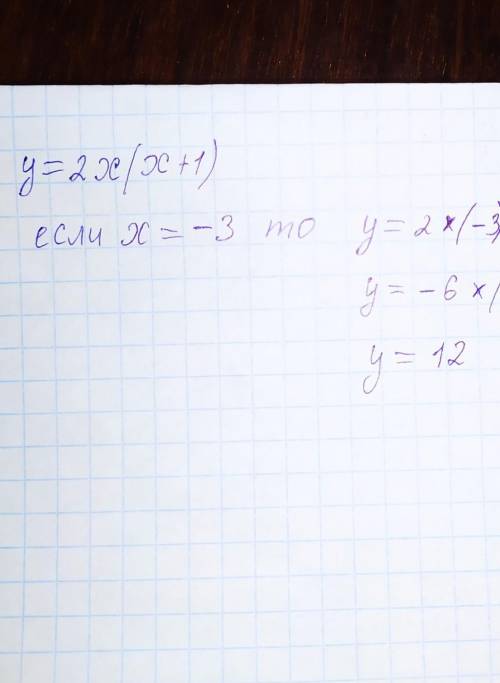 y = 2x(x+1)
если x = -3 то y = 2×(-3)
y = -6×(
y = 12